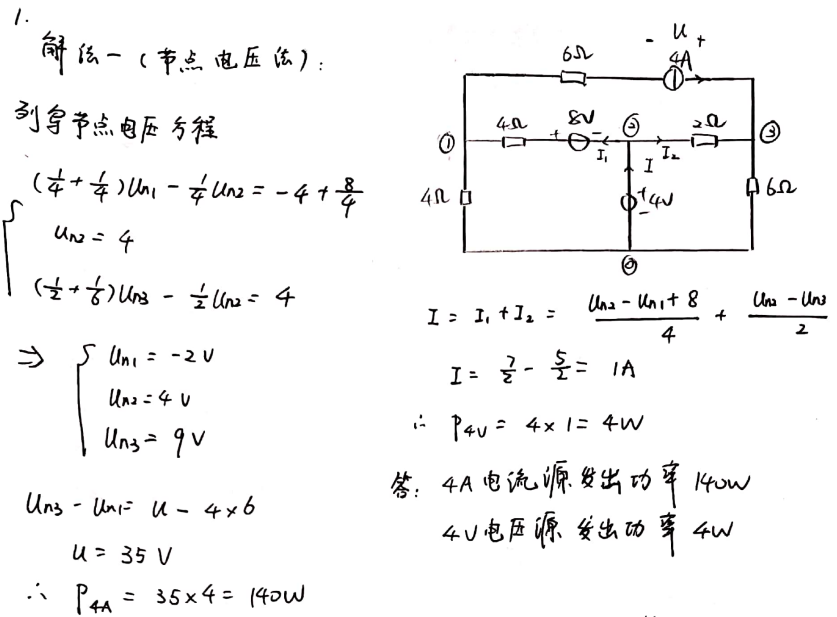 1.
解法一(节点电压法):
列写节点电压方程
(1/4 + 1/4)Un1 - 1/4 Un2 = -4 + 8/4
Un2 = 4
(1/2 + 1/6)Un3 - 1/2 Un2 = 4
⇒ Un1 = -2V
Un2 = 4V
Un3 = 9V
Un3 - Un1 = U - 4×6
U = 35V
∴ P4A = 35×4 = 140W
- U +
6Ω 4A
① 4Ω + 8V - ② 2Ω ③
I1 I I2
4Ω + 4V - 6Ω
⓪
I = I1 + I2 = (Un2 - Un1 + 8)/4 + (Un2 - Un3)/2
I = 7/2 - 5/2 = 1A
∴ P4V = 4×1 = 4W
答: 4A电流源发出功率140W
4V电压源发出功率4W